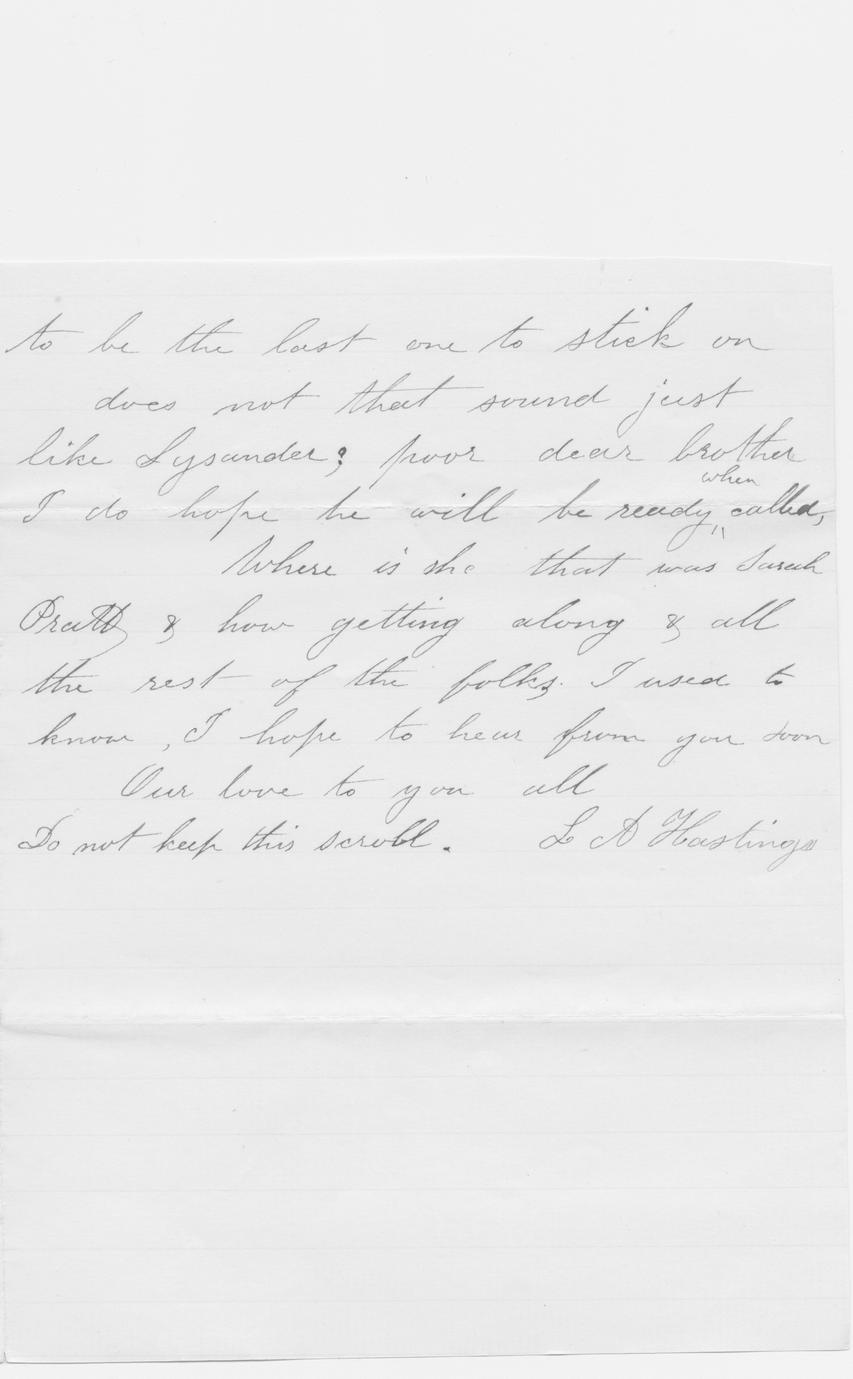 to be the last one to stick on
does not that sound just
like Lysander? poor dear brother
when
I do hope he will be ready, called,
Where is she that was Sarah
Pratt & how getting along & all
the rest of the folks. I used to
know, I hope to hear from you soon
Our love to you all
Do not keep this scroll. L A Hastings